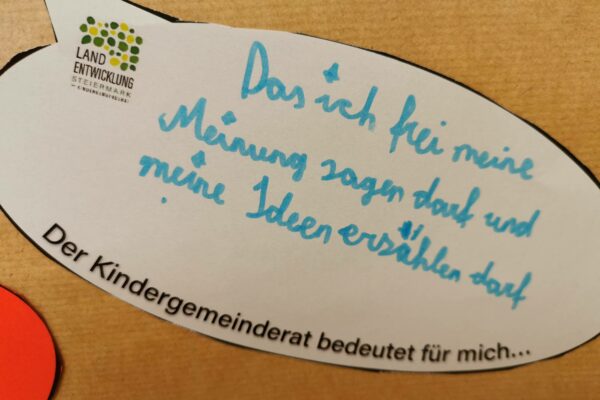 LAND
ENTWICKLUNG
STEIERMARK
Das ich frei meine
Meinung sagen darf und
meine Ideen erzählen darf
Der Kindergemeinderat bedeutet für mich...